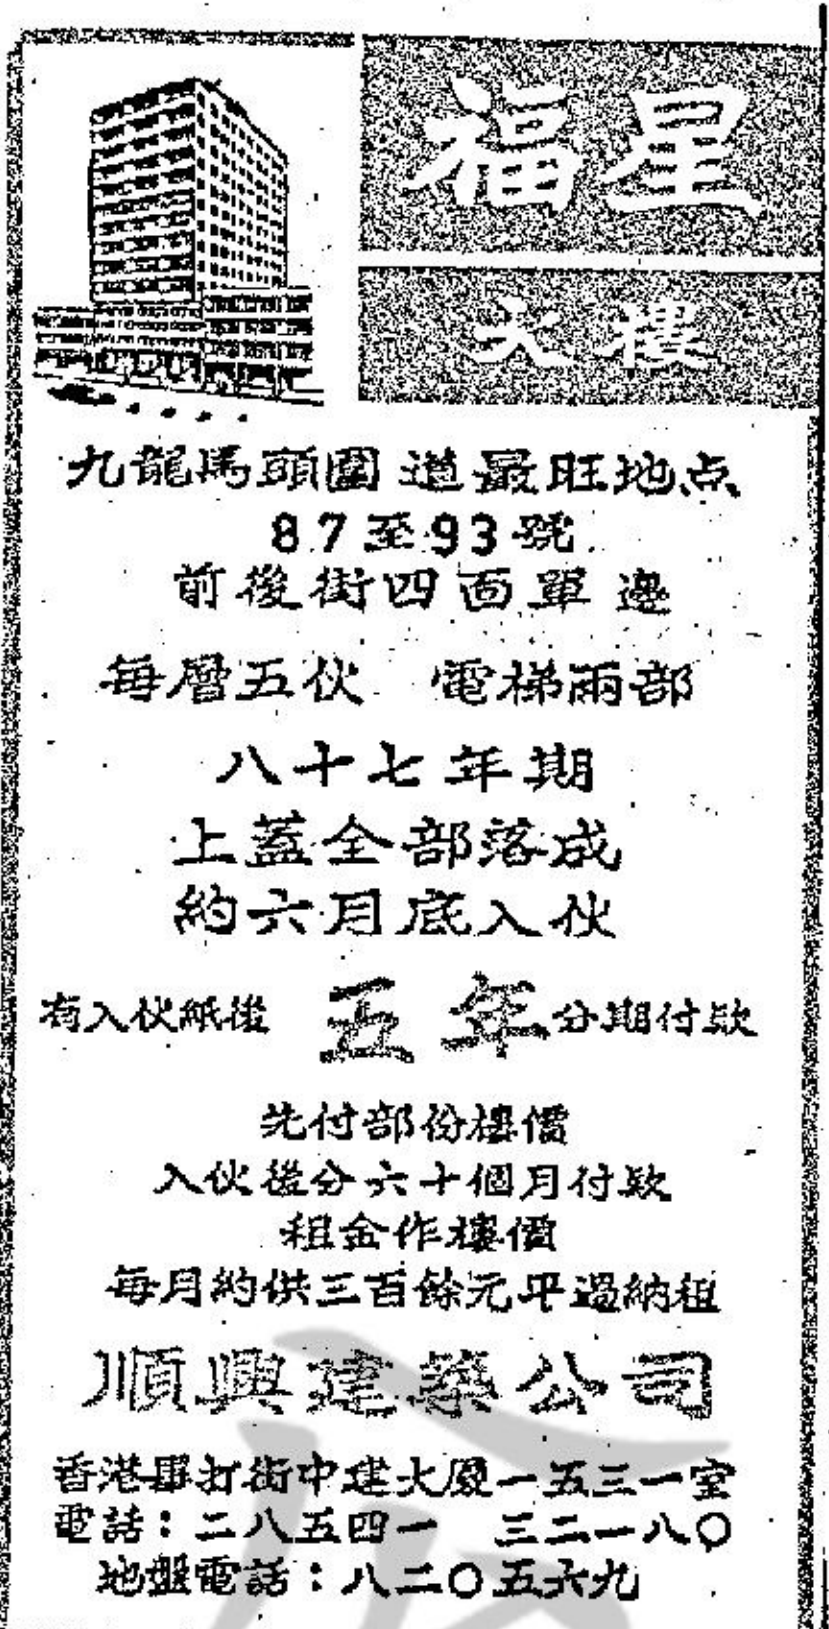 福星
大樓
九龍馬頭圍道最旺地点
87至93號
前後街四面單邊
每層五伙 電梯兩部
八十七年期
上蓋全部落成
約六月底入伙
有入伙紙後 五年 分期付款
先付部份樓價
入伙後分六十個月付款
租金作樓價
每月約供三百餘元平過納租
順興建築公司
香港畢打街中建大廈一五三一室
電話：二八五四一 三二一八〇
地盤電話：八二〇五六九